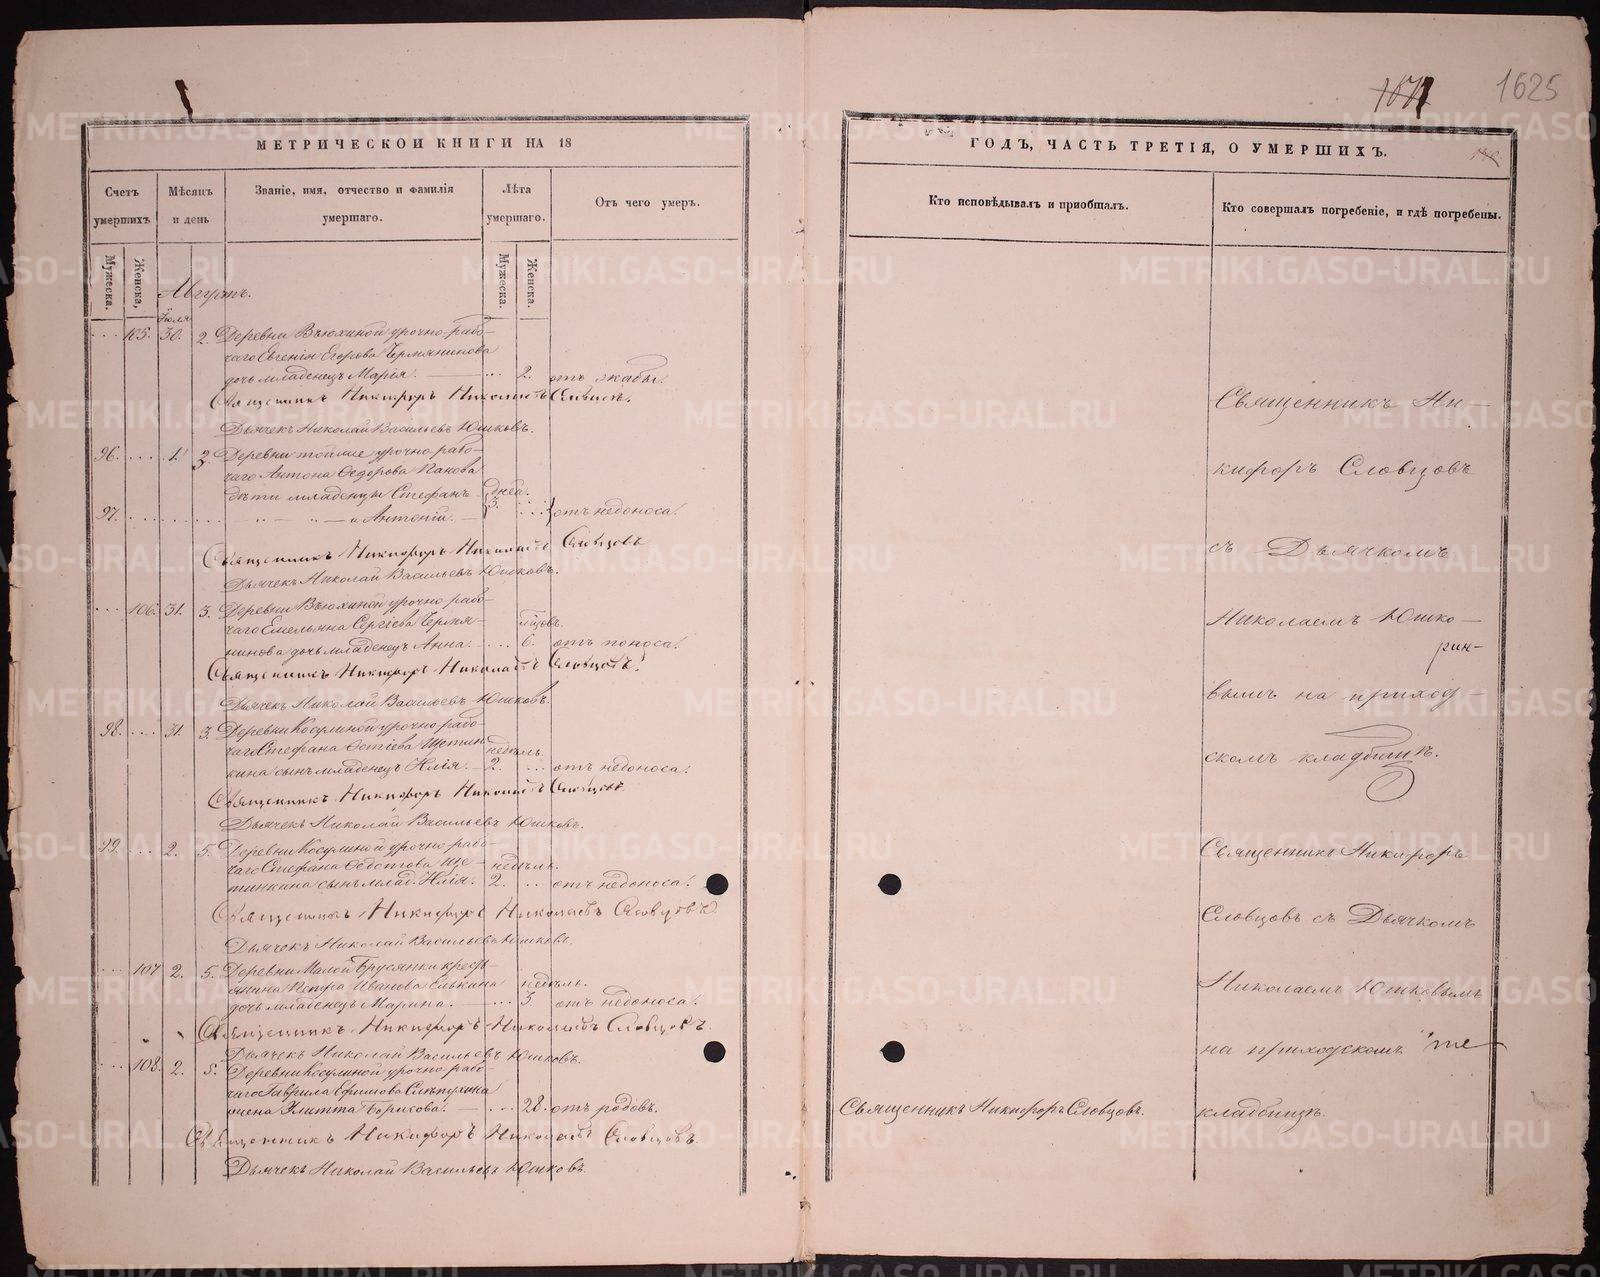 1625
МЕТРИЧЕСКОЙ КНИГИ НА 18
ГОДЪ, ЧАСТЬ ТРЕТІЯ, О УМЕРШИХЪ.
Счетъ умершихъ
Мѣсяцъ и день
Званіе, имя, отчество и фамилія умершаго.
Лѣта умершаго.
Отъ чего умеръ.
Кто исповѣдывалъ и пріобщалъ.
Кто совершалъ погребеніе, и гдѣ погребены.
Мужеска.
Женска.
Мужеска.
Женска.
Августъ.
Іюля
105. 30. 2. Деревни Вьюхиной урочно-рабо-
чаго Евгенія Егорова Чермянинова
дочь младенецъ Марія. 2. отъ жабы.
Священникъ Никифоръ Николаевъ Словцовъ.
Дьячекъ Николай Васильевъ Юшковъ.
96. 1. 3. Деревни тойже урочно-рабо-
чаго Антона Ѳедорова Панова
дѣти младенцы Стефанъ дней.
3.
97. и Антоній. отъ недоноса.
Священникъ Никифоръ Николаевъ Словцовъ
Дьячекъ Николай Васильевъ Юшковъ.
106. 31. 3. Деревни Вьюхиной урочно-рабо-
чаго Емельяна Сергѣева Чермя-
нинова дочь младенецъ Анна. 6. отъ поноса.
Священникъ Никифоръ Николаевъ Словцовъ.
Дьячекъ Николай Васильевъ Юшковъ.
98. 31. 3. Деревни Косулиной урочно-рабо-
чаго Стефана Щетин- недѣль.
кина сынъ младенецъ Илія. 2. отъ недоноса.
Священникъ Никифоръ Николаевъ Словцовъ
Дьячекъ Николай Васильевъ Юшковъ.
99. 2. 5. Деревни Косулиной урочно-рабо-
чаго Стефана Ѳедотова Ще- недѣль.
тинкина сынъ млад. Илія. 2. отъ недоноса.
Священникъ Никифоръ Николаевъ Словцовъ
Дьячекъ Николай Васильевъ Юшковъ.
107 2. 5. Деревни Малой Брусянки кресть-
янина Петра Иванова Елькина недѣль.
дочь младенецъ Марина. 3 отъ недоноса.
Священникъ Никифоръ Николаевъ Словцовъ.
Дьячекъ Николай Васильевъ Юшковъ.
108. 2. 5. Деревни Косулиной урочно-рабо-
чаго Гаврила Ефимова Слѣпухина
жена Улитта Борисова. 28. отъ родовъ.
Священникъ Никифоръ Николаевъ Словцовъ.
Дьячекъ Николай Васильевъ Юшковъ.
Священникъ Никифоръ Словцовъ.
Священникъ Ни-
кифоръ Словцовъ
съ Дьячкомъ
Николаемъ Юшко-
вымъ на приход-
скомъ кладбищѣ.
Священникъ Никифоръ
Словцовъ съ Дьячкомъ
Николаемъ Юшковымъ
на приходскомъ же
кладбищѣ.
METRIKI.GASO-URAL.RU